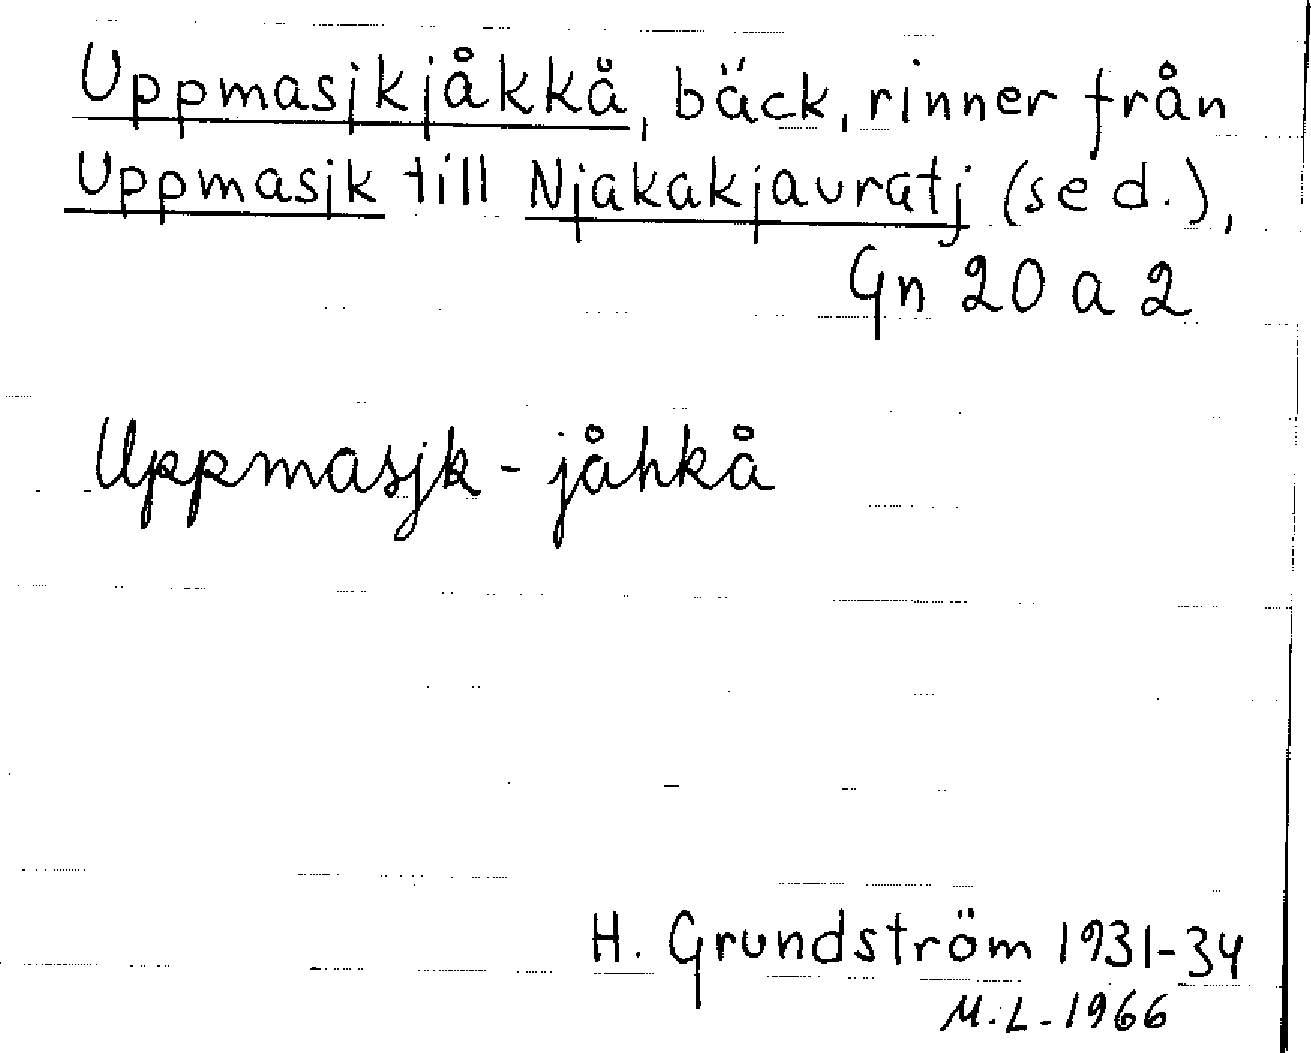 Uppmasjkjåkkå, bäck, rinner från
Uppmasjk till Njakakjauratj (se d.),
Gn 20 a 2
Uppmasjk-jåhkå
H. Grundström 1931-34
M.L. 1966